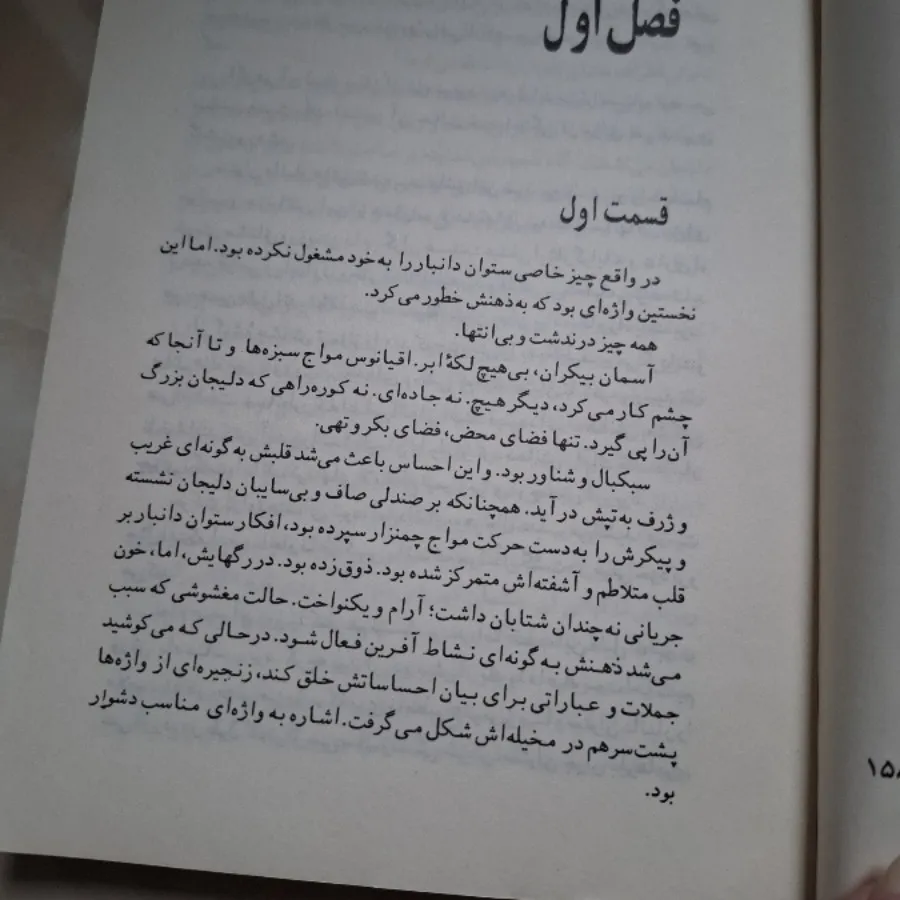 فصل اول
قسمت اول
در واقع چیز خاصی ستوان دانبار را به‌خود مشغول نکرده بود. اما این
نخستین واژه‌ای بود که به‌ذهنش خطور می‌کرد.
همه چیز درندشت و بی‌انتها.
آسمان بیکران، بی‌هیچ لکهٔ ابر. اقیانوس مواج سبزه‌ها و تا آنجا که
چشم کار می‌کرد، دیگر هیچ. نه جاده‌ای. نه کوره‌راهی که دلیجان بزرگ
آن را پی گیرد. تنها فضای محض، فضای بکر و تهی.
سبکبال و شناور بود. و این احساس باعث می‌شد قلبش به گونه‌ای غریب
و ژرف به‌تپش درآید. همچنانکه بر صندلی صاف و بی‌سایبان دلیجان نشسته
و پیکرش را به‌دست حرکت مواج چمنزار سپرده بود، افکار ستوان دانبار بر
قلب متلاطم و آشفته‌اش متمرکز شده بود. ذوق‌زده بود. در رگهایش، اما، خون
جریانی نه‌چندان شتابان داشت؛ آرام و یکنواخت. حالت مغشوشی که سبب
می‌شد ذهنش به گونه‌ای نشاط آفرین فعال شود. درحالی که می‌کوشید
جملات و عباراتی برای بیان احساساتش خلق کند، زنجیره‌ای از واژه‌ها
پشت‌سرهم در مخیله‌اش شکل می‌گرفت. اشاره به واژه‌ای مناسب دشوار
بود.